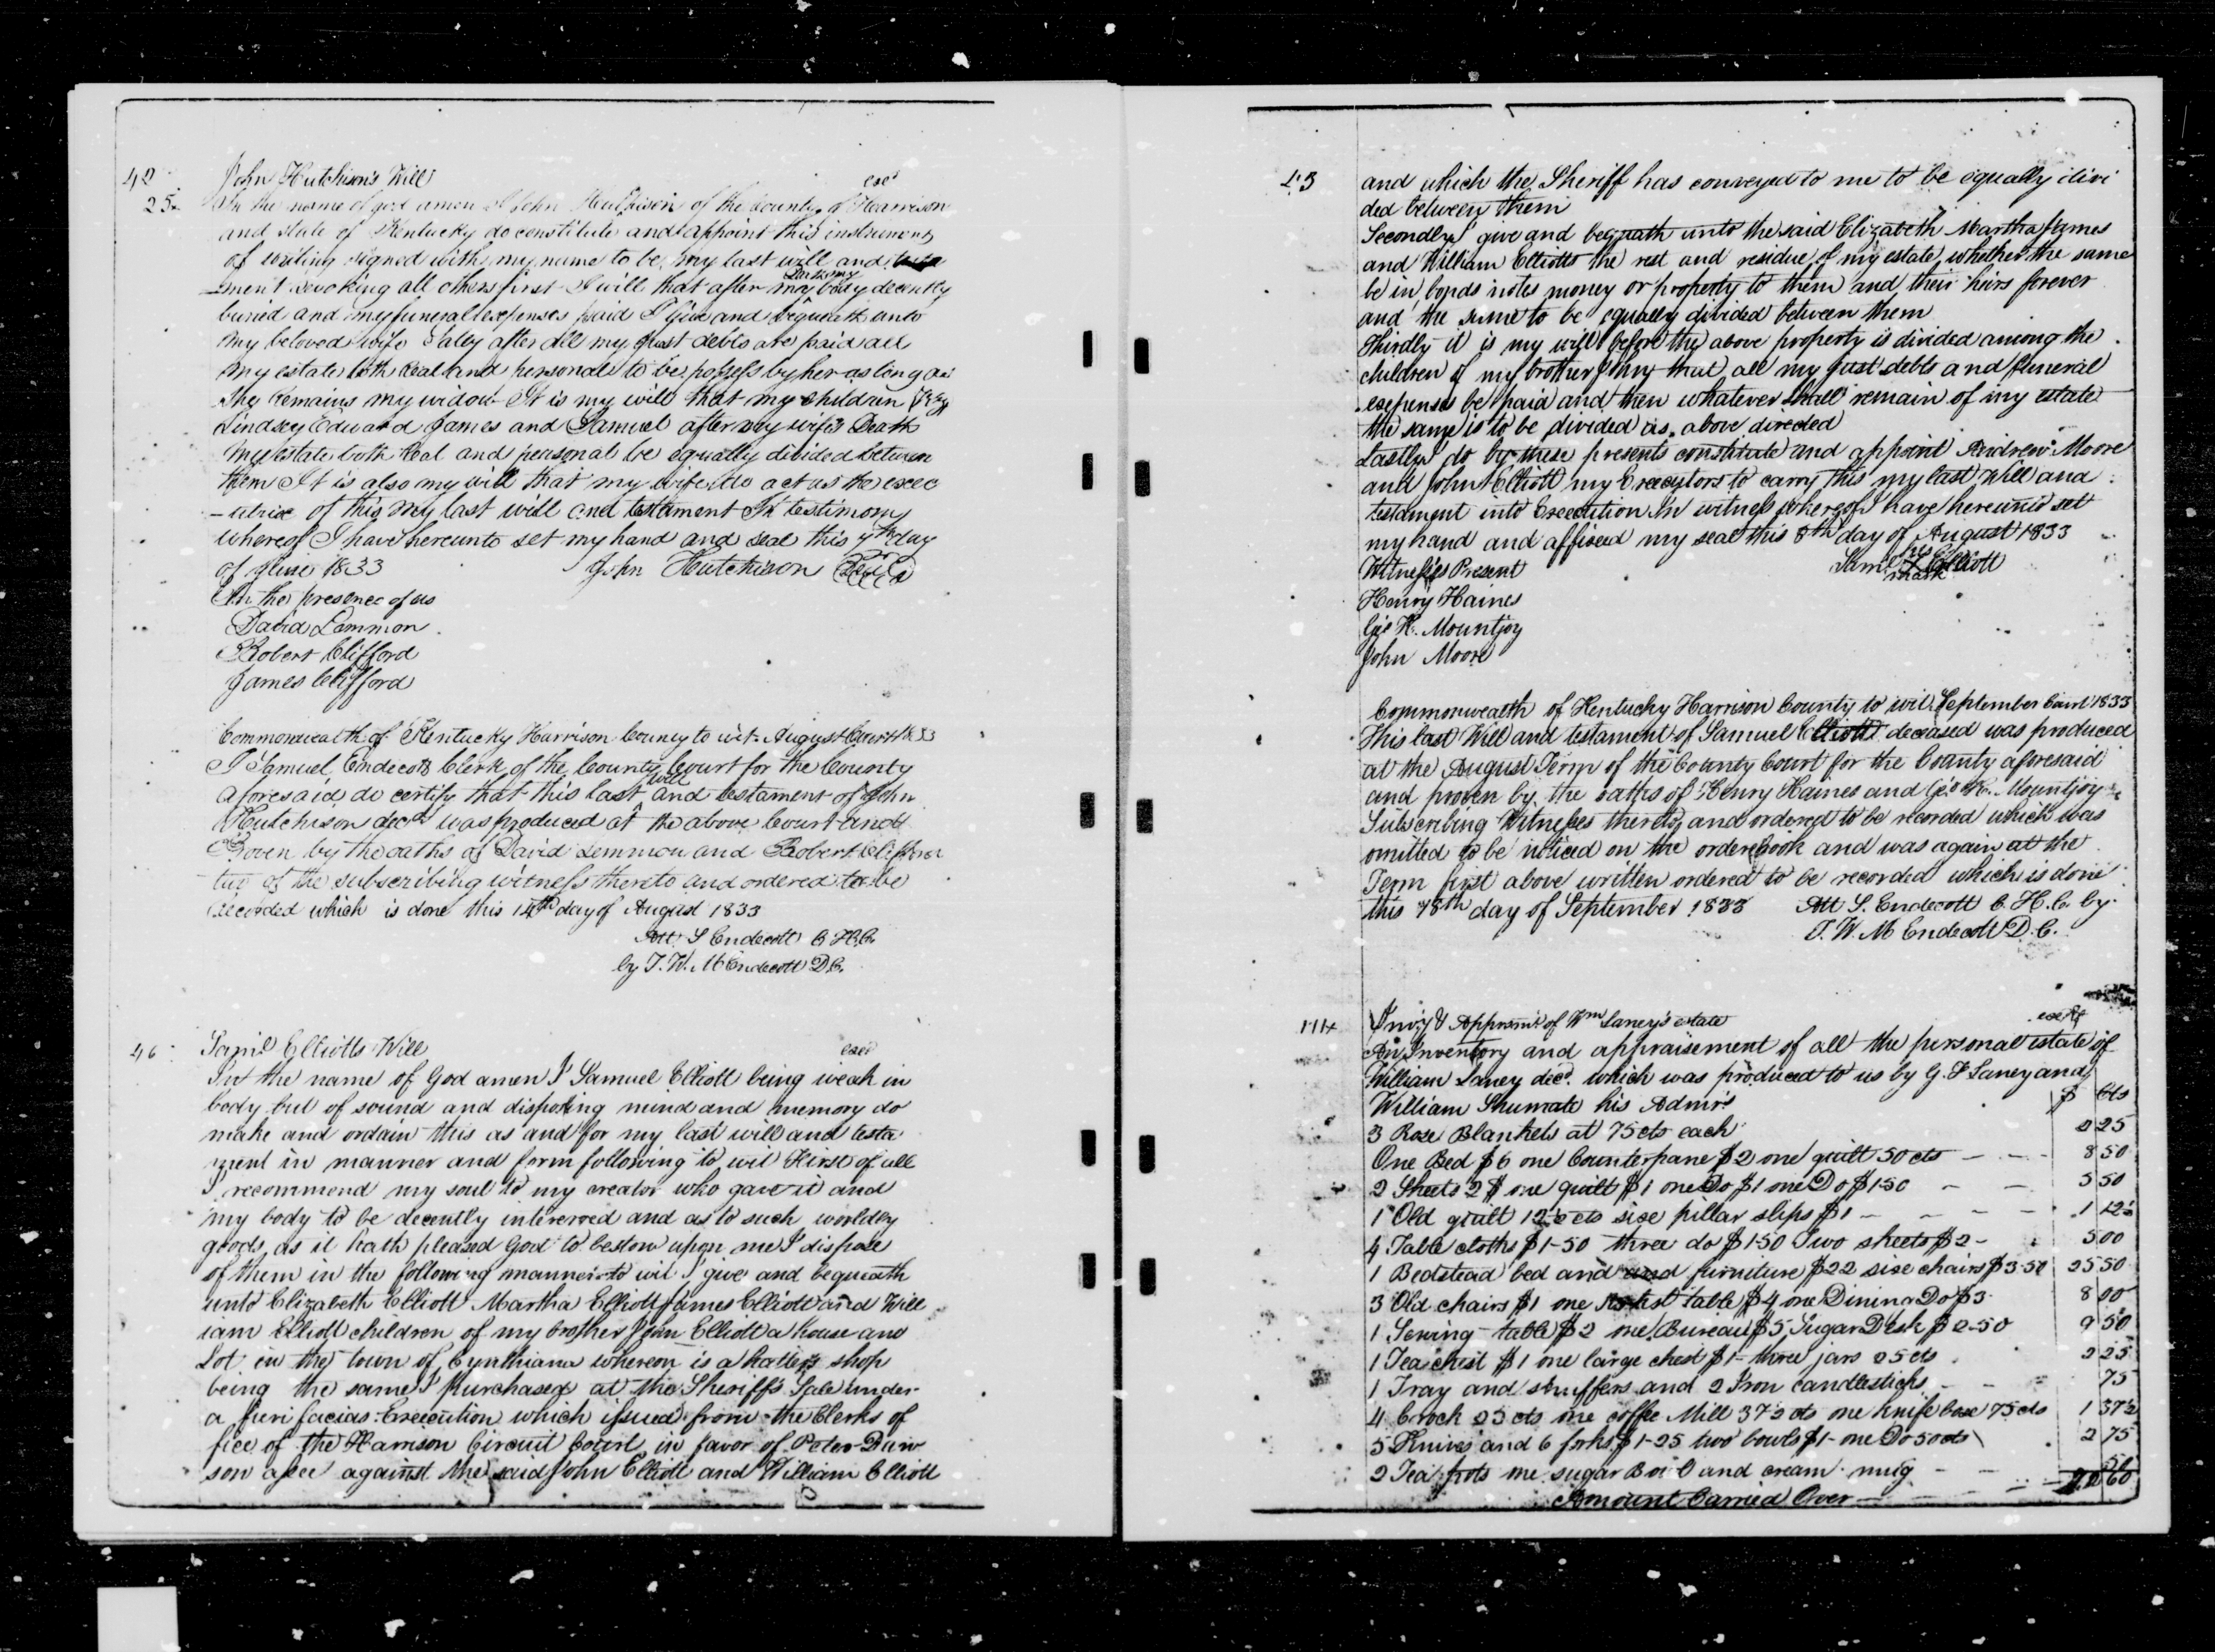 42
John Hutchison's Will
exd
25
In the name of god amen I John Hutchison of the County of Harrison
and state of Kentucky do constitute and appoint this instrument
of writing signed with my name to be my last will and
-ment revoking all others first I will that after my body decently
buried and my funeral expenses paid I give and bequeath unto
my beloved wife Sally after all my just debts are paid all
my estate both Real and personal to be possess by her as long as
she remains my widow It is my will that my children
Lindsey Edward James and Samuel after my wife's Death
my estate both Real and personal be equally divided between
them It is also my will that my wife do act as the exec
-utrix of this my last will and testament In testimony
whereof I have hereunto set my hand and seal this 7th day
of June 1833 John Hutchison Seal
In the presence of us
David Lemmon
Robert Clifford
James Clifford
Commonwealth of Kentucky Harrison County to wit August Court 1833
I Samuel Endecott Clerk of the County Court for the County
aforesaid do certify that this last will and testament of John
Hutchison decd was produced at the above Court and
Proven by the oaths of David Lemmon and Robert Clifford
two of the subscribing witness thereto and ordered to be
recorded which is done this 14th day of August 1833
Att S Endecott C H C
by T. W. M Endecott D C.
46
Saml Elliotts Will
exd
In the name of God amen I Samuel Elliott being weak in
body but of sound and disposing mind and memory do
make and ordain this as and for my last will and testa
ment in manner and form following to wit First of all
I recommend my soul to my creator who gave it and
my body to be decently intererred and as to such worldly
goods as it hath pleased God to bestow upon me I dispose
of them in the following manner to wit I give and bequeath
unto Elizabeth Elliott Martha Elliott James Elliott and Will
iam Elliott children of my brother John Elliott a house and
Lot in the town of Cynthiana whereon is a hatters shop
being the same I purchased at the Sheriffs Sale under
a fieri facias Execution which issued from the Clerks of
fice of the Harrison Circuit Court in favor of Peter
son against the said John Elliott and William Elliott
43
and which the Sheriff has conveyed to me to be equally divi
ded between them
Secondly I give and bequath unto the said Elizabeth Martha James
and William Elliotts the rest and residue of my estate whether the same
be in bonds notes money or property to them and their heirs forever
and the same to be equally divided between them
Thirdly it is my will before the above property is divided among the
children of my brother John that all my just debts and funeral
expenses be paid and then whatever shall remain of my estate
the same is to be divided as above directed
Lastly I do by these presents constitute and appoint Andrew Moore
and John Elliott my Executors to carry this my last Will and
testament into Execution In witness whereof I have hereunto set
my hand and affixed my seal this 8th day of August 1833
Witnesses Present
his
Saml X Elliott
mark
Henry Haines
Geo H. Mountjoy
John Moore
Commonwealth of Kentucky Harrison County to wit September Court 1833
This last Will and testament of Samuel Elliott deceased was produced
at the August Term of the County Court for the County aforesaid
and proven by the oaths of Henry Haines and Geo H. Mountjoy
Subscribing Witnesses thereto and ordered to be recorded which was
omitted to be noticed on the order book and was again at the
Term first above written ordered to be recorded which is done
this 18th day of September 1833 Att S. Endecott C. H. C. by
T. W. M Endecott D. C.
Invy & Appraismt of Wm Laney's estate
An Inventory and appraisement of all the personal estate of
William Laney decd. which was produced to us by G. F Laney and
William Shumate his Admrs $ Cts
3 Rose Blankets at 75 cts each 2 25
One Bed $6 one Counterpane $2 one quilt 50 cts 8 50
2 Sheets 2 $ one quilt $1 one Do $1 one Do $1 50 5 50
1 Old quilt 12½ cts six pillar slips $1 1 12½
4 Table cloths $1-50 three do $1 50 Two sheets $2 5 00
1 Bedstead bed and and furniture $22 six chairs $3 50 25 50
3 Old chairs $1 one table $4 one Dining Do $3 8 00
1 Sewing table $2 one Bureau $5 Sugar Desk $2-50 9 50
1 Tea chest $1 one large chest $1- three jars 25 cts 2 25
1 Tray and snuffers and 2 Iron candlesticks 75
4 Crock 25 cts one coffee Mill 37½ cts one knife box 75 cts 1 37½
5 Knives and 6 forks $1-25 two bowls $1- one Do 50 cts 2 75
2 Tea pots one sugar Bowl and cream mug
Amount Carried Over